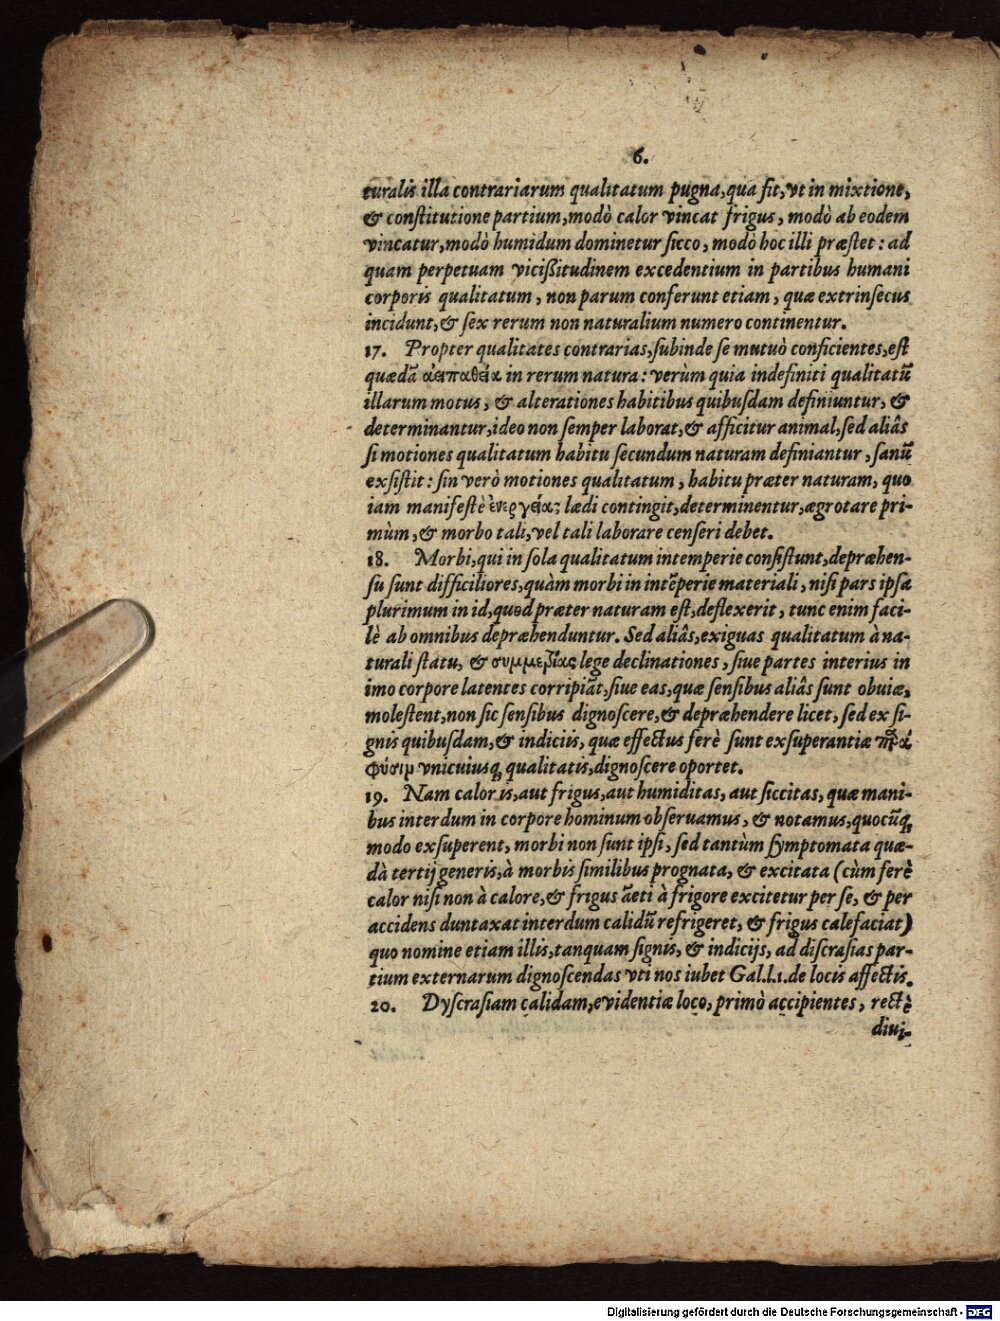 6.
turalis illa contrariarum qualitatum pugna, qua fit, vt in mixtione,
& conſtitutione partium, modò calor vincat frigus, modò ab eodem
vincatur, modò humidum dominetur ſicco, modò hoc illi præſtet: ad
quam perpetuam viciſſitudinem excedentium in partibus humani
corporis qualitatum, non parum conferunt etiam, quæ extrinſecus
incidunt, & ſex rerum non naturalium numero continentur.
17. Propter qualitates contrarias, ſubinde ſe mutuò conficientes, eſt
quædā ἀειπαθεία in rerum natura: verùm quia indefiniti qualitatū
illarum motus, & alterationes habitibus quibuſdam definiuntur, &
determinantur, ideo non ſemper laborat, & afficitur animal, ſed aliâs
ſi motiones qualitatum habitu ſecundum naturam definiantur, ſanū
exſiſtit: ſin verò motiones qualitatum, habitu præter naturam, quo
iam manifeſtè ἐνεργείας lædi contingit, determinentur, ægrotare pri-
mùm, & morbo tali, vel tali laborare cenſeri debet.
18. Morbi, qui in ſola qualitatum intemperie conſiſtunt, depræhen-
ſu ſunt difficiliores, quàm morbi in intēperie materiali, niſi pars ipſa
plurimum in id, quod præter naturam eſt, deflexerit, tunc enim faci-
lè ab omnibus depræhenduntur. Sed aliâs, exiguas qualitatum à na-
turali ſtatu, & συμμετρίας lege declinationes, ſiue partes interius in
imo corpore latentes corripiāt, ſiue eas, quæ ſenſibus aliâs ſunt obuiæ,
moleſtent, non ſic ſenſibus dignoſcere, & depræhendere licet, ſed ex ſi-
gnis quibuſdam, & indiciis, quæ effectus ferè ſunt exſuperantiæ παρὰ
φύσιμ vnicuiusq; qualitatis, dignoſcere oportet.
19. Nam calor is, aut frigus, aut humiditas, aut ſiccitas, quæ mani-
bus interdum in corpore hominum obſeruamus, & notamus, quocūq;
modo exſuperent, morbi non ſunt ipſi, ſed tantùm ſymptomata quæ-
dā tertij generis, à morbis ſimilibus prognata, & excitata (cùm ferè
calor niſi non à calore, & frigus āeti à frigore excitetur per ſe, & per
accidens duntaxat interdum calidū refrigeret, & frigus calefaciat)
quo nomine etiam illis, tanquam ſignis, & indicijs, ad diſcraſias par-
tium externarum dignoſcendas vti nos iubet Gal. l. 1. de locis affectis.
20. Dyſcraſiam calidam, euidentiæ loco, primò accipientes, rectè
diui-
Digitalisierung gefördert durch die Deutsche Forschungsgemeinschaft - DFG